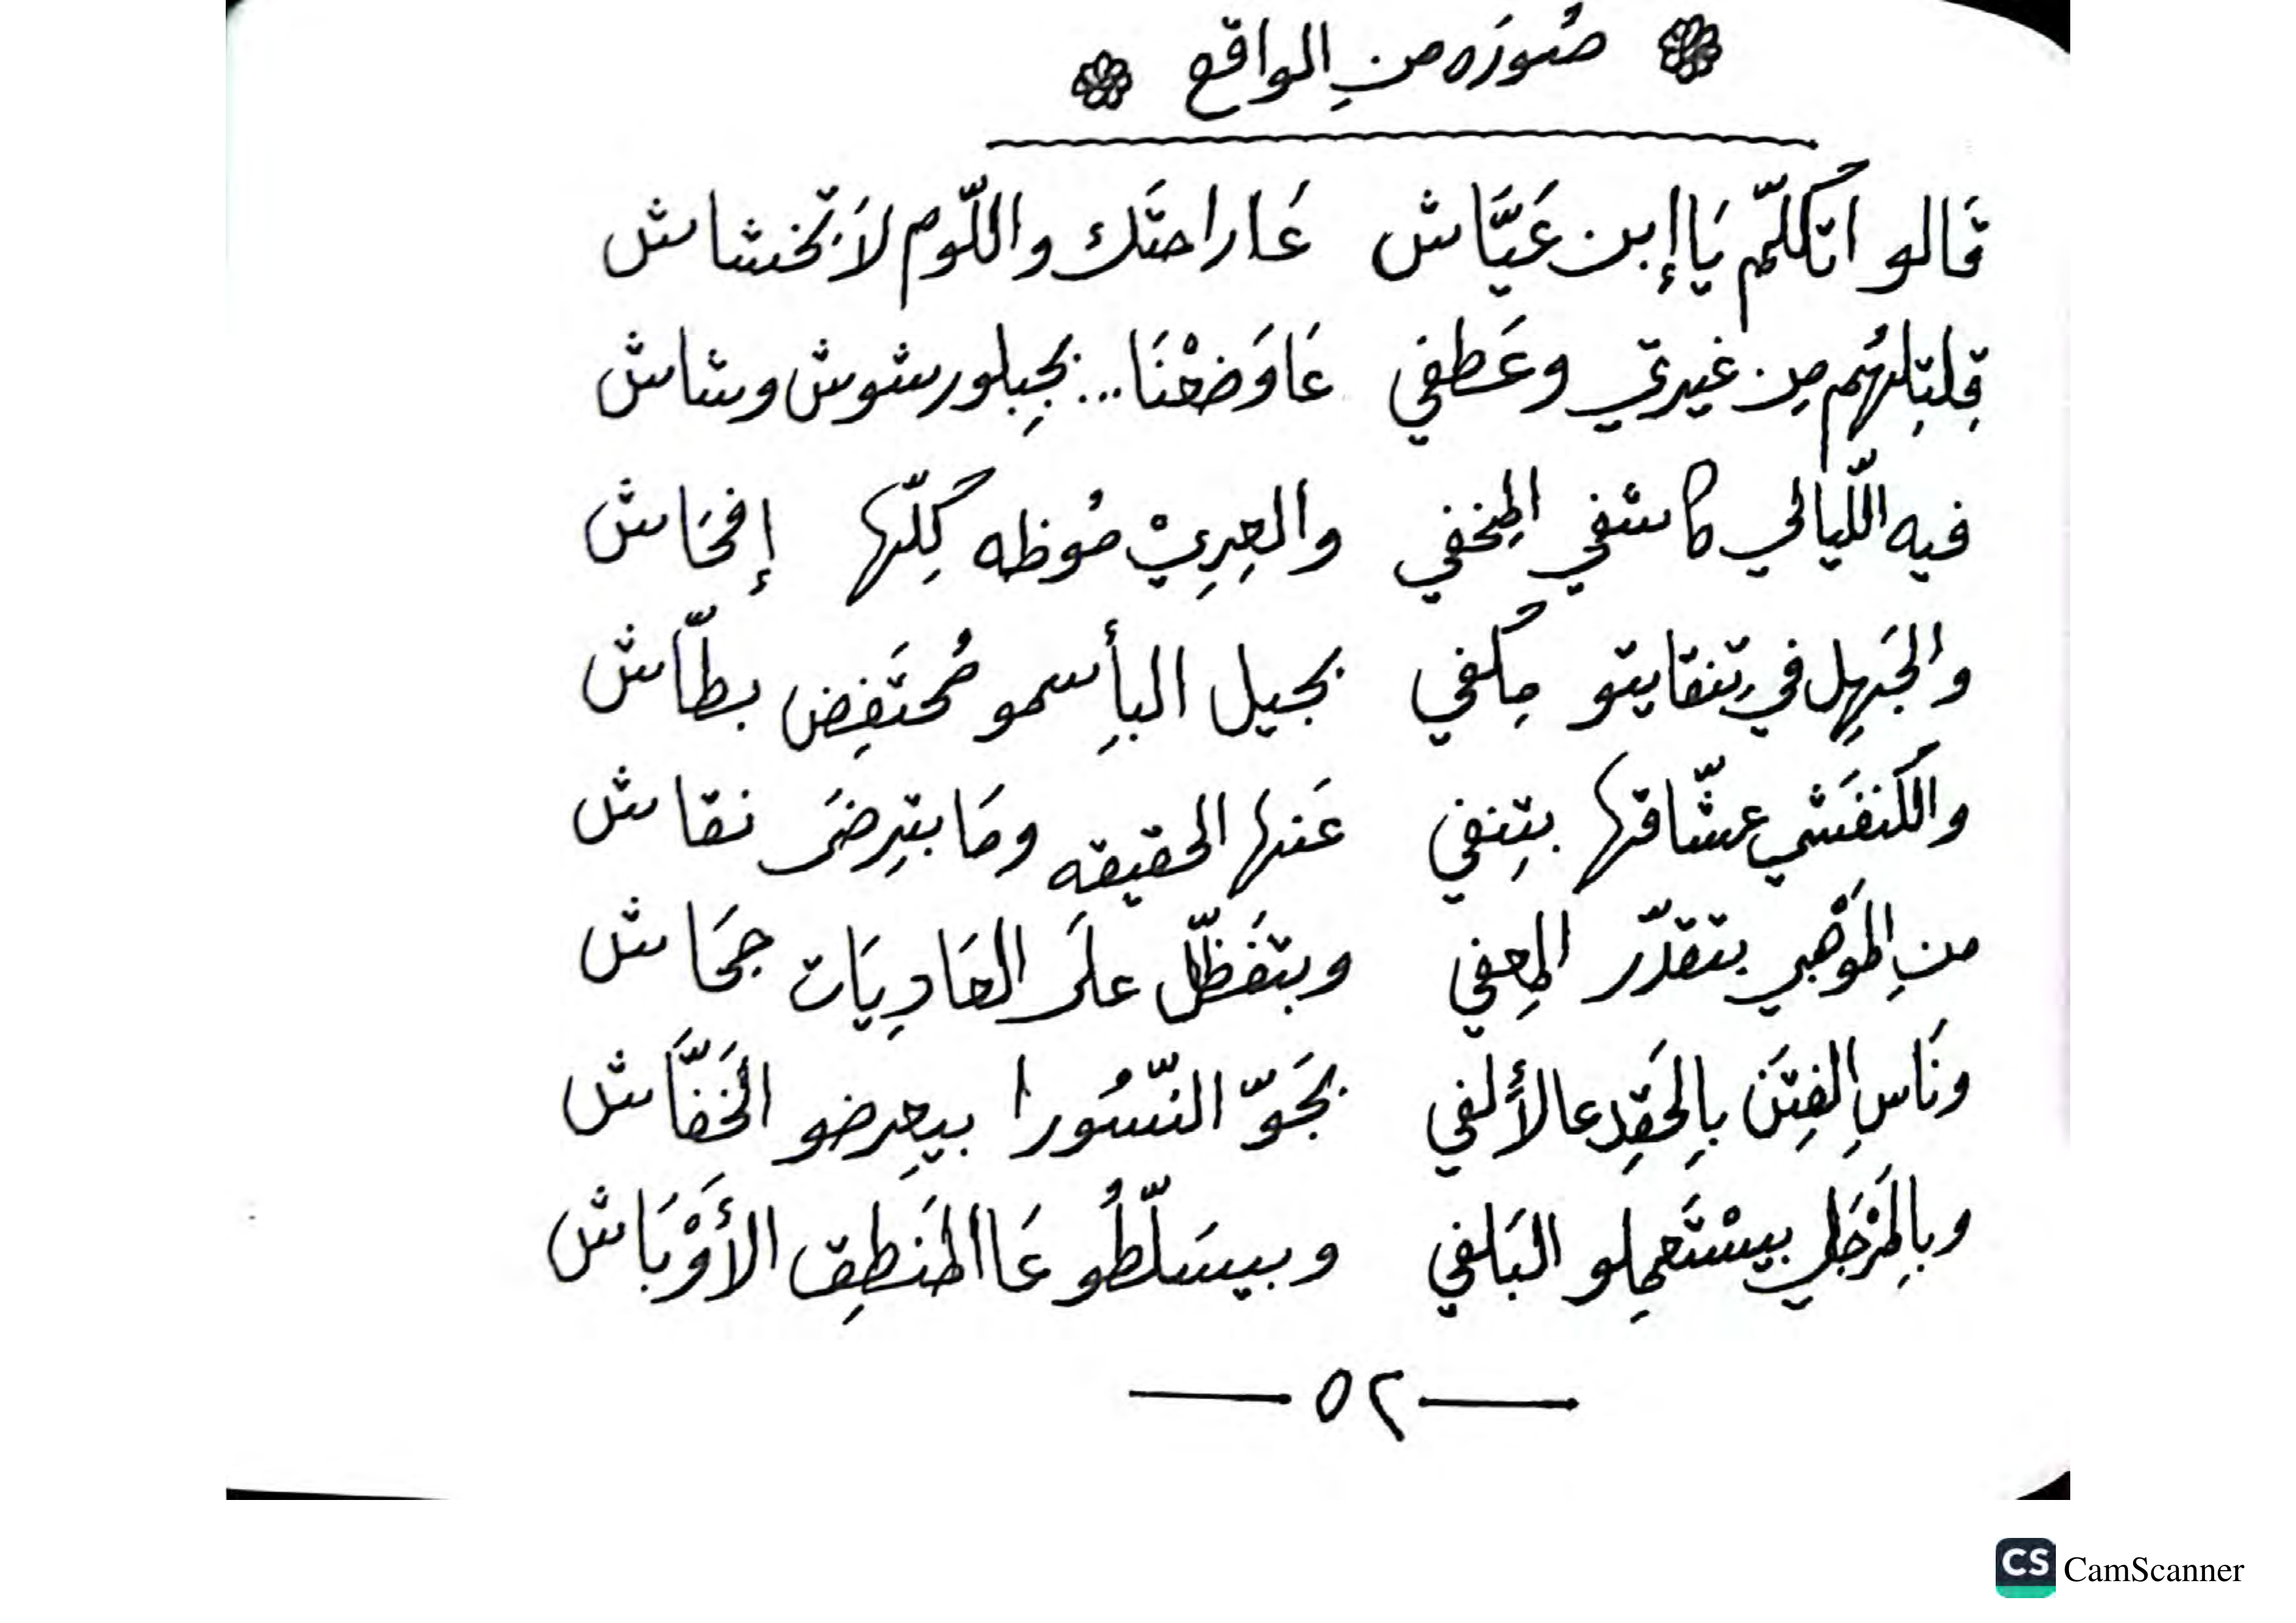 صُورَه منِ الواقع
قَالو اتكَلّم يَا إبن عَيَّاش عَا راحتَك واللّوم لاَ تخشاش
قِلتِلهُم مِن غيرتي وعَطفي عَا وَضعْنَا... بجِيلو رشوش وشاش
فيه اللّيالي كاشفي المِخفي والعِرِيْ مُوظه كِلّها إفحَاش
والجَهِل في تِنقايتو مِكَفي بجيل البأِسمو مُحتَفِض بطّاش
والكَنفَشي عشّاقها بتِنفي عَنها الحقيقه ومَا بتِرضىَ نقاش
منِ المَوْهبي بتقدّر المِعفي وبتفَظّل علىَ العَادِيَات جحَاش
ونَاسِ الفِتَن بِالحَقِد عا الأَلفي بجَوّ النّسُورا بيعِرضو الخَفَّاش
وبالِمَرْجَلي بيسْتَعمِلو البَلفي وبيسَلّطُو عَا المَنطِق الأَوْبَاش
٥٢
CS CamScanner